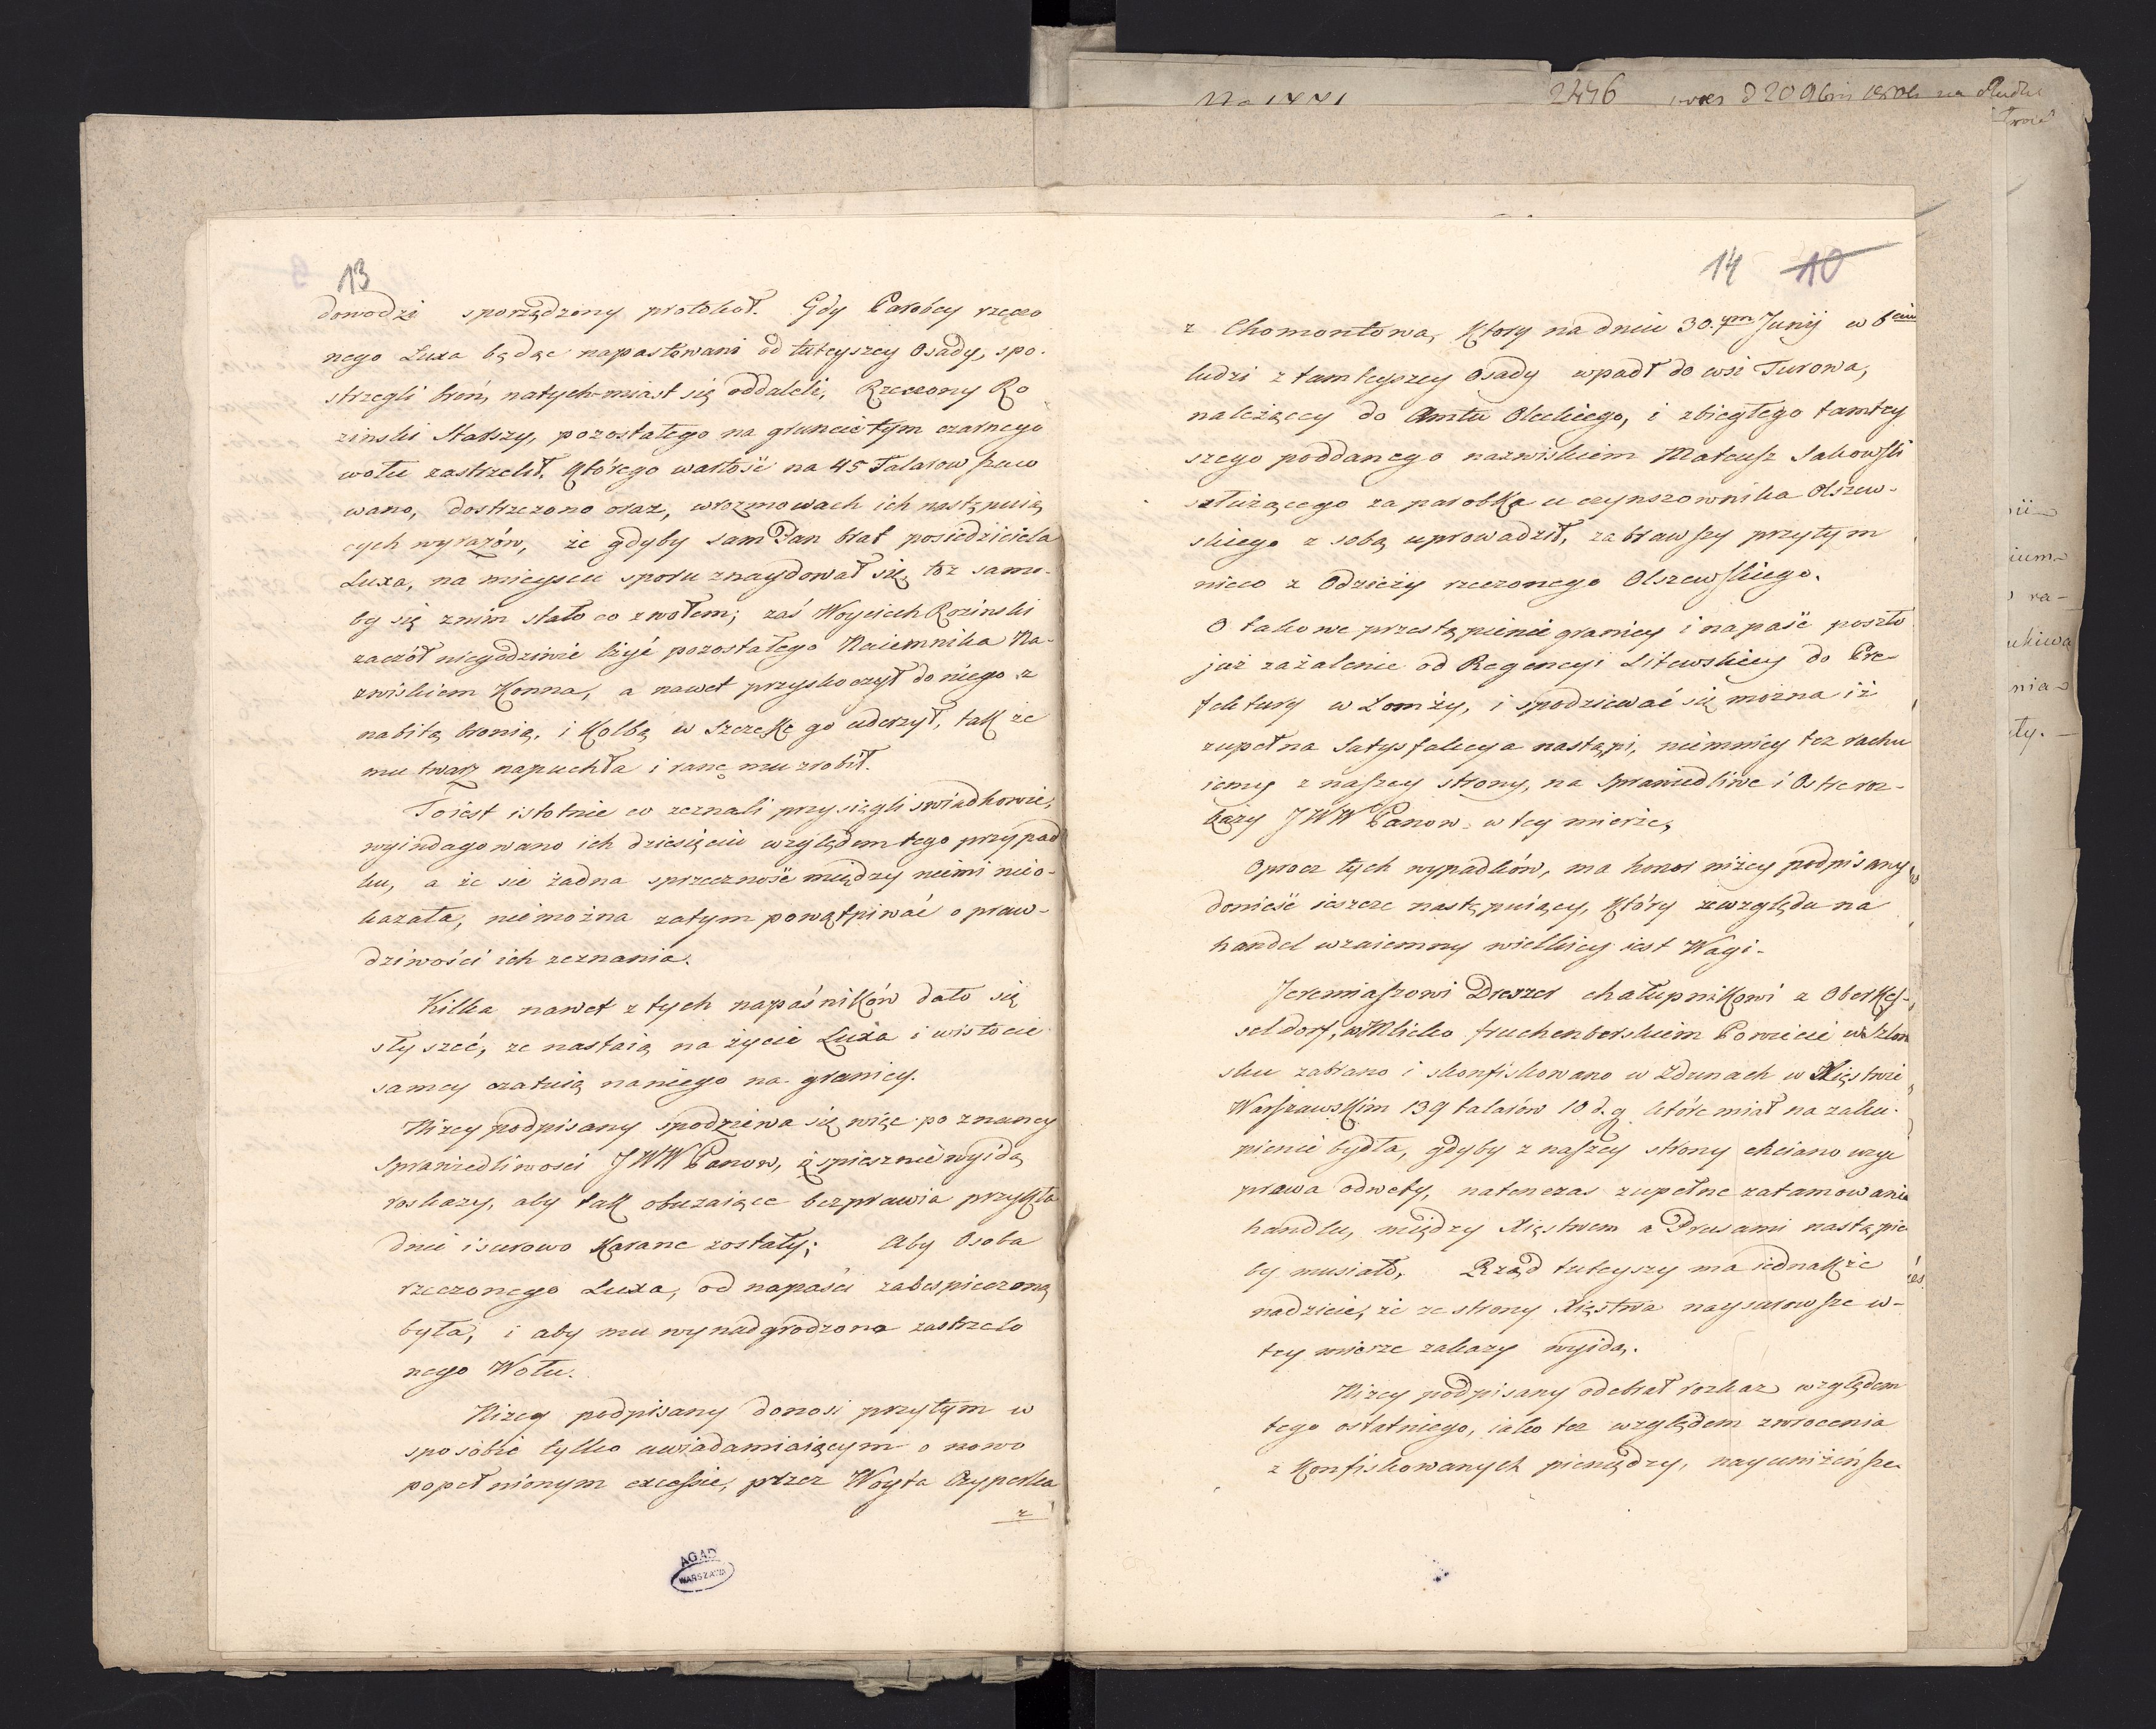 2446
13
dowodzi sporządzony protokoł. Gdy Parobcy rzeczo
nego Luxa będąc napastowani od tuteyszey Osady, spo-
strzegli broń, natychmiast się oddalili, Rzeczony Ro
zinski Starszy, pozostałego na gruncie tym czarnego
wołu zastrzelił, którego wartość na 45 Talarow szaco
wano, dostrzeżono oraz, w rozmowach ich następuią
cych wyrazów, że gdyby sam Pan brat posiedziciela
Luxa, na mieyscu sporu znaydował się, toż samo
by się znim stało co zwołem; zaś Woyciech Rozinski
zaczół niegodziwie lżyć pozostałego Naiemnika Na-
zwiskiem Konna, a nawet przyskoczył do niego z
nabitą bronią, i Kolbą w szczękę go uderzył, tak że
mu twarz napuchła i ranę mu zrobił.
To iest istotnie co zeznali przysięgli swiadkowie,
wyindagowano ich dziesięciu względem tego przypad
ku, a że sie żadna sprzeczność między niemi nieo-
kazała, niemożna zatym powątpiwać o praw-
dziwości ich zeznania.
Kilka nawet z tych napaśników dało się
słyszeć, ze nastaią na życie Luxa i wistocie
samey czatuią naniego na granicy.
Niżey podpisany spodziewa się więc po znaney
Sprawiedliwosci JWW Panow, iż spiesznie wyidą
roskazy, aby tak oburzaiące bezprawia przykła
dnie i surowo Karane zostały; Aby Osoba
rzeczonego Luxa, od napaści zabespieczoną
była, i aby mu wynadgrodzono zastrzelo
nego Wołu.
Niżey podpisany donosi przytym w
sposobie tylko uwiadamiaiącym o nowo
popełnionym excessie, przez Woyta Czyperka
z
AGAD
WARSZAWA
14 10
z Chomontowa, Ktory na dniu 30.ym Junij w 6ciu
ludzi z tamteyszey Osady wpadł do wsi Turowa,
należącey do Amtu Oleckiego, i zbiegłego tamtey
szego poddanego nazwiskiem Mateusz Sakowski
służącego za parobka u czynszownika Olszew-
skiego z sobą uprowadził, zabrawszy przytym
nieco z Odzieży rzeczonego Olszewskiego.
O takowe przestąpienie granicy i napaść poszło
już zażalenie od Regencyi Litewskiey do Pre-
fektury w Łomży, i spodziewać się można iż
zupełna Satysfakcya nastąpi, niemniey tez rachu
iemy z naszey strony, na Sprawiedliwe i Ostre roz-
kazy JWW Panow w tey mierze,
Oprocz tych wypadków, ma honor niżey podpisany
donieść ieszcze następuiący, Który zwzględu na
handel wzaiemny wielkiey iest Wagi.
Jeremiaszowi Drewzer chałupnikowi z Oberkes-
seldorf, fruchenberskiem Powiecie w Szlon
sku zabrano i skonfiskowano w Zdunach w Xięstwie
Warszawskim 139 talarów 10 d.g. które miał na zaku-
pienie bydła, gdyby z naszey strony chciano użyć
prawa odwety, natenczas zupełne zatamowanie
handlu, między Xięstwem a Prusami nastąpić
by musiało, Rząd tuteyszy ma iednakże
nadzieie, że ze strony Xięstwa naysurowsze w-
tey mierze zakazy wyidą.
Niżey podpisany odebrał rozkaz względem
tego ostatniego, iako tez względem zwrocenia
z Konfiskowanych pieniędzy, nayuniżeńsze